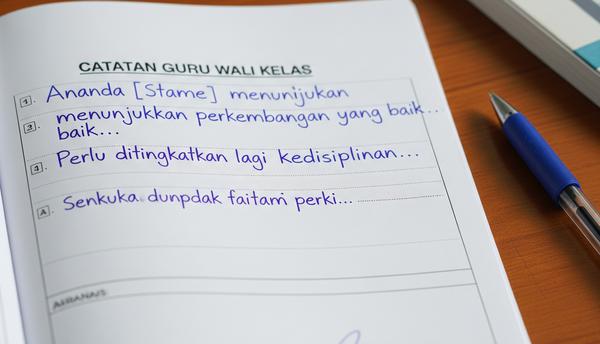 CATATAN GURU WALI KELAS
1. Ananda [Stame] menunijukan
3. menunjukkan perkembangan yang baik...
baik...
4. Perlu ditingkatkan lagi kedisiplinan...
A. Senkuka. dunpdak faitami perki...